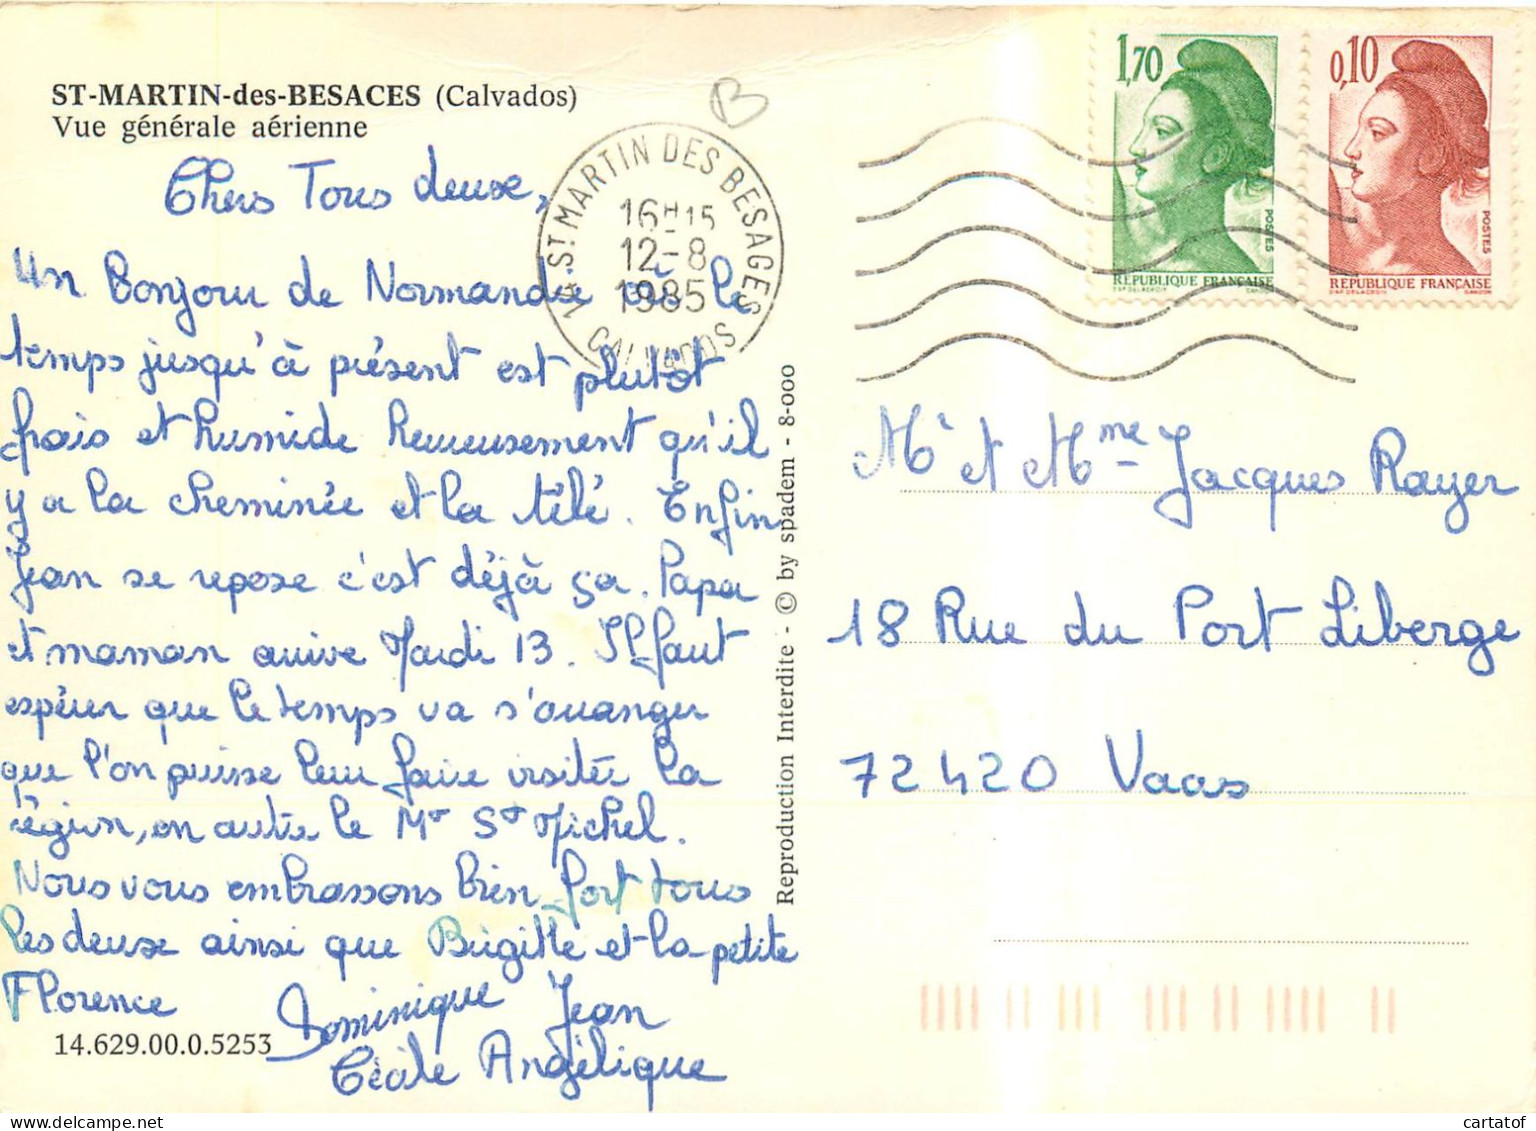 ST-MARTIN-des-BESACES (Calvados)
Vue générale aérienne
Chers Tous deuxe,
Un Bonjour de Normandie où le
temps jusqu'à présent est plutôt
frais et humide Heureusement qu'il
y a la cheminée et la télé. Enfin
Jean se repose c'est déjà ça. Papa
et maman arrive Mardi 13. Il faut
espérer que le temps va s'arranger
que l'on puisse leur faire visiter la
région, en autre le Mt St Michel.
Nous vous embrassons bien fort tous
les deuxe ainsi que Brigitte et la petite
Florence
Dominique Jean
Cécile Angélique
14.629.00.0.5253
Reproduction Interdite - © by spadem - 8-000
14 ST MARTIN DES BESACES
16H15
12-8
1985
CALVADOS
1,70
POSTES
RÉPUBLIQUE FRANÇAISE
D'AP. DELACROIX GANDON
0,10
POSTES
RÉPUBLIQUE FRANÇAISE
D'AP. DELACROIX GANDON
Mr et Mme Jacques Rayer
18 Rue du Port Liberge
72420 Vaas
cartatof